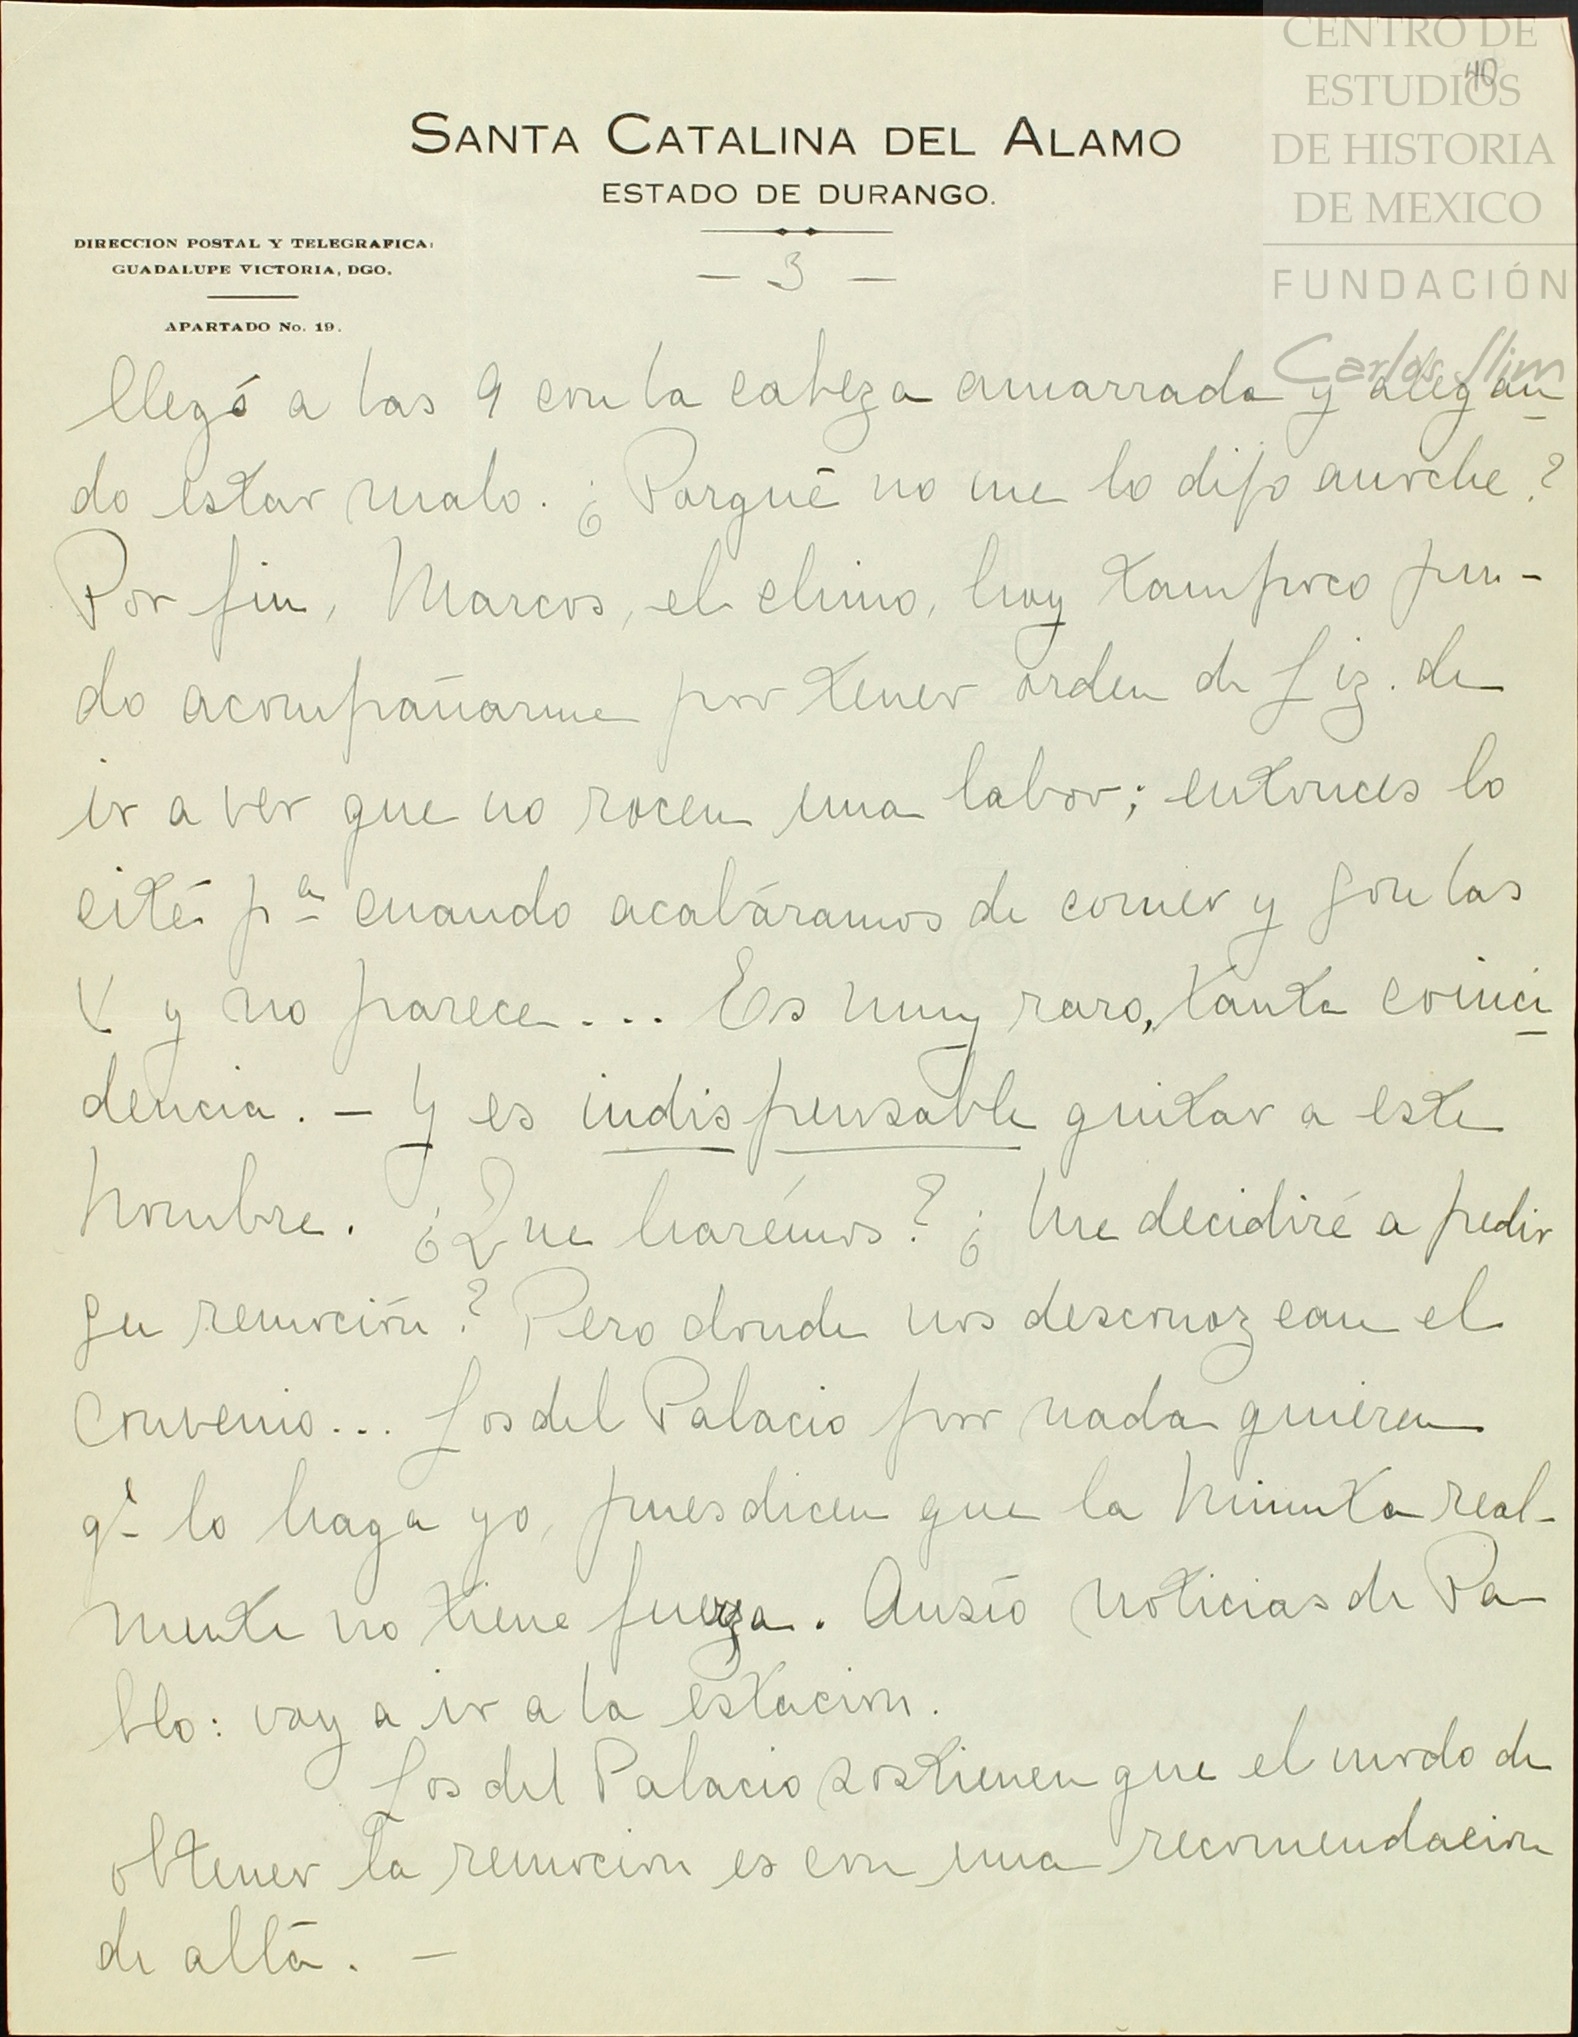 CENTRO DE
ESTUDIOS
DE HISTORIA
DE MEXICO
FUNDACIÓN
Carlos Slim
40
SANTA CATALINA DEL ALAMO
ESTADO DE DURANGO.
DIRECCION POSTAL Y TELEGRAFICA:
GUADALUPE VICTORIA, DGO.
APARTADO No. 19.
— 3 —
llegó a las 9 con la cabeza amarrada y alegan
do estar malo. ¿Porqué no me lo dijo anoche?
Por fin, Marcos, el chino, hoy tampoco pu-
do acompañarme por tener orden de Liz. de
ir a ver que no rocen una labor; entonces lo
cité pª cuando acabáramos de comer y son las
y no parece... Es muy raro, tanta coinci
dencia. — Y es indispensable quitar a este
hombre. ¿Que harémos? ¿Me decidiré a pedir
su remoción? Pero donde nos desconozcan el
convenio... Los del Palacio por nada quieren
qe lo haga yo, pues dicen que la minuta real-
mente no tiene fuerza. Ansío noticias de Pa
blo: voy a ir a la estacion.
Los del Palacio sostienen que el modo de
obtener la remocion es con una recomendacion
de allá. —